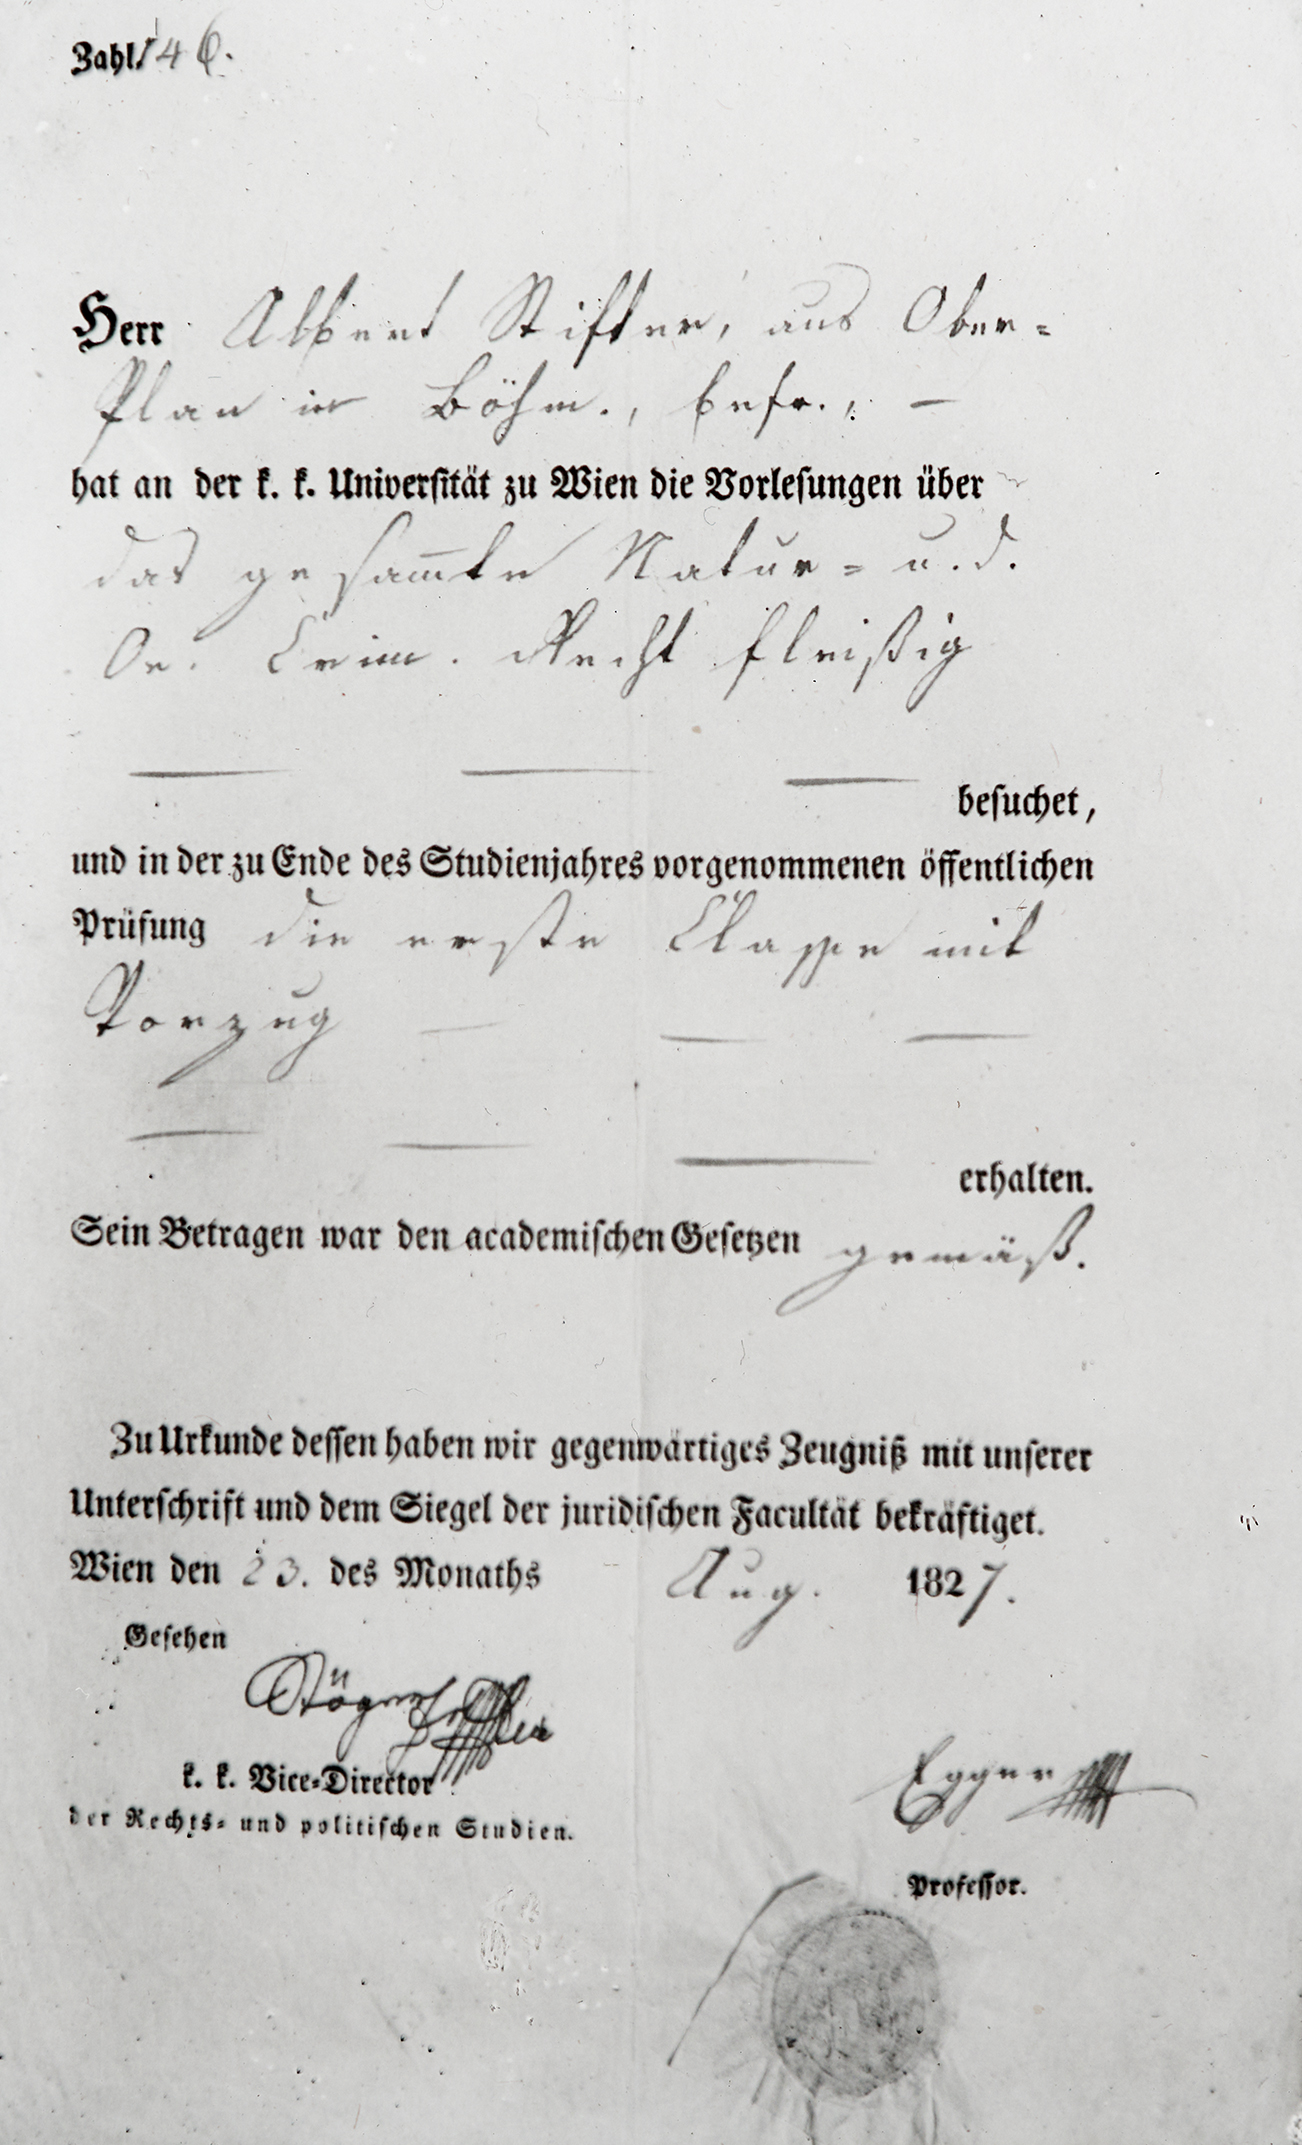 Zahl 146.
Herr Albert Stifter, aus Ober=
Plan in Böhm., befr., —
hat an der k. k. Universität zu Wien die Vorlesungen über
das gesam̄te Natur= u. d.
Oe. Crim. Recht fleißig
— — — besuchet,
und in der zu Ende des Studienjahres vorgenommenen öffentlichen
Prüfung die erste Classe mit
Vorzug — — —
— — — erhalten.
Sein Betragen war den academischen Gesetzen gemäß.
Zu Urkunde dessen haben wir gegenwärtiges Zeugniß mit unserer
Unterschrift und dem Siegel der juridischen Facultät bekräftiget.
Wien den 23. des Monaths Aug. 1827.
Gesehen
Stöger
k. k. Vice=Director
der Rechts= und politischen Studien.
Egger
Professor.